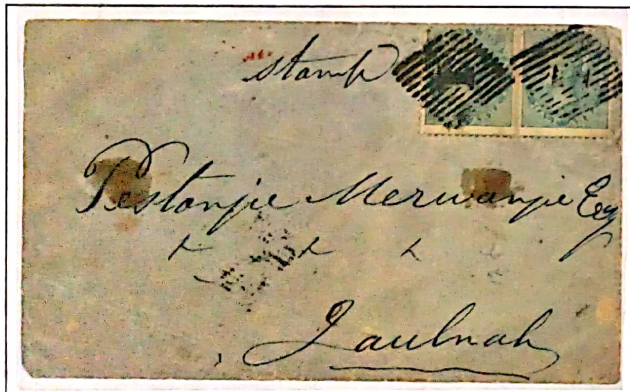 stamp
Pestonjie Merwanjie Esq
Jaulnah